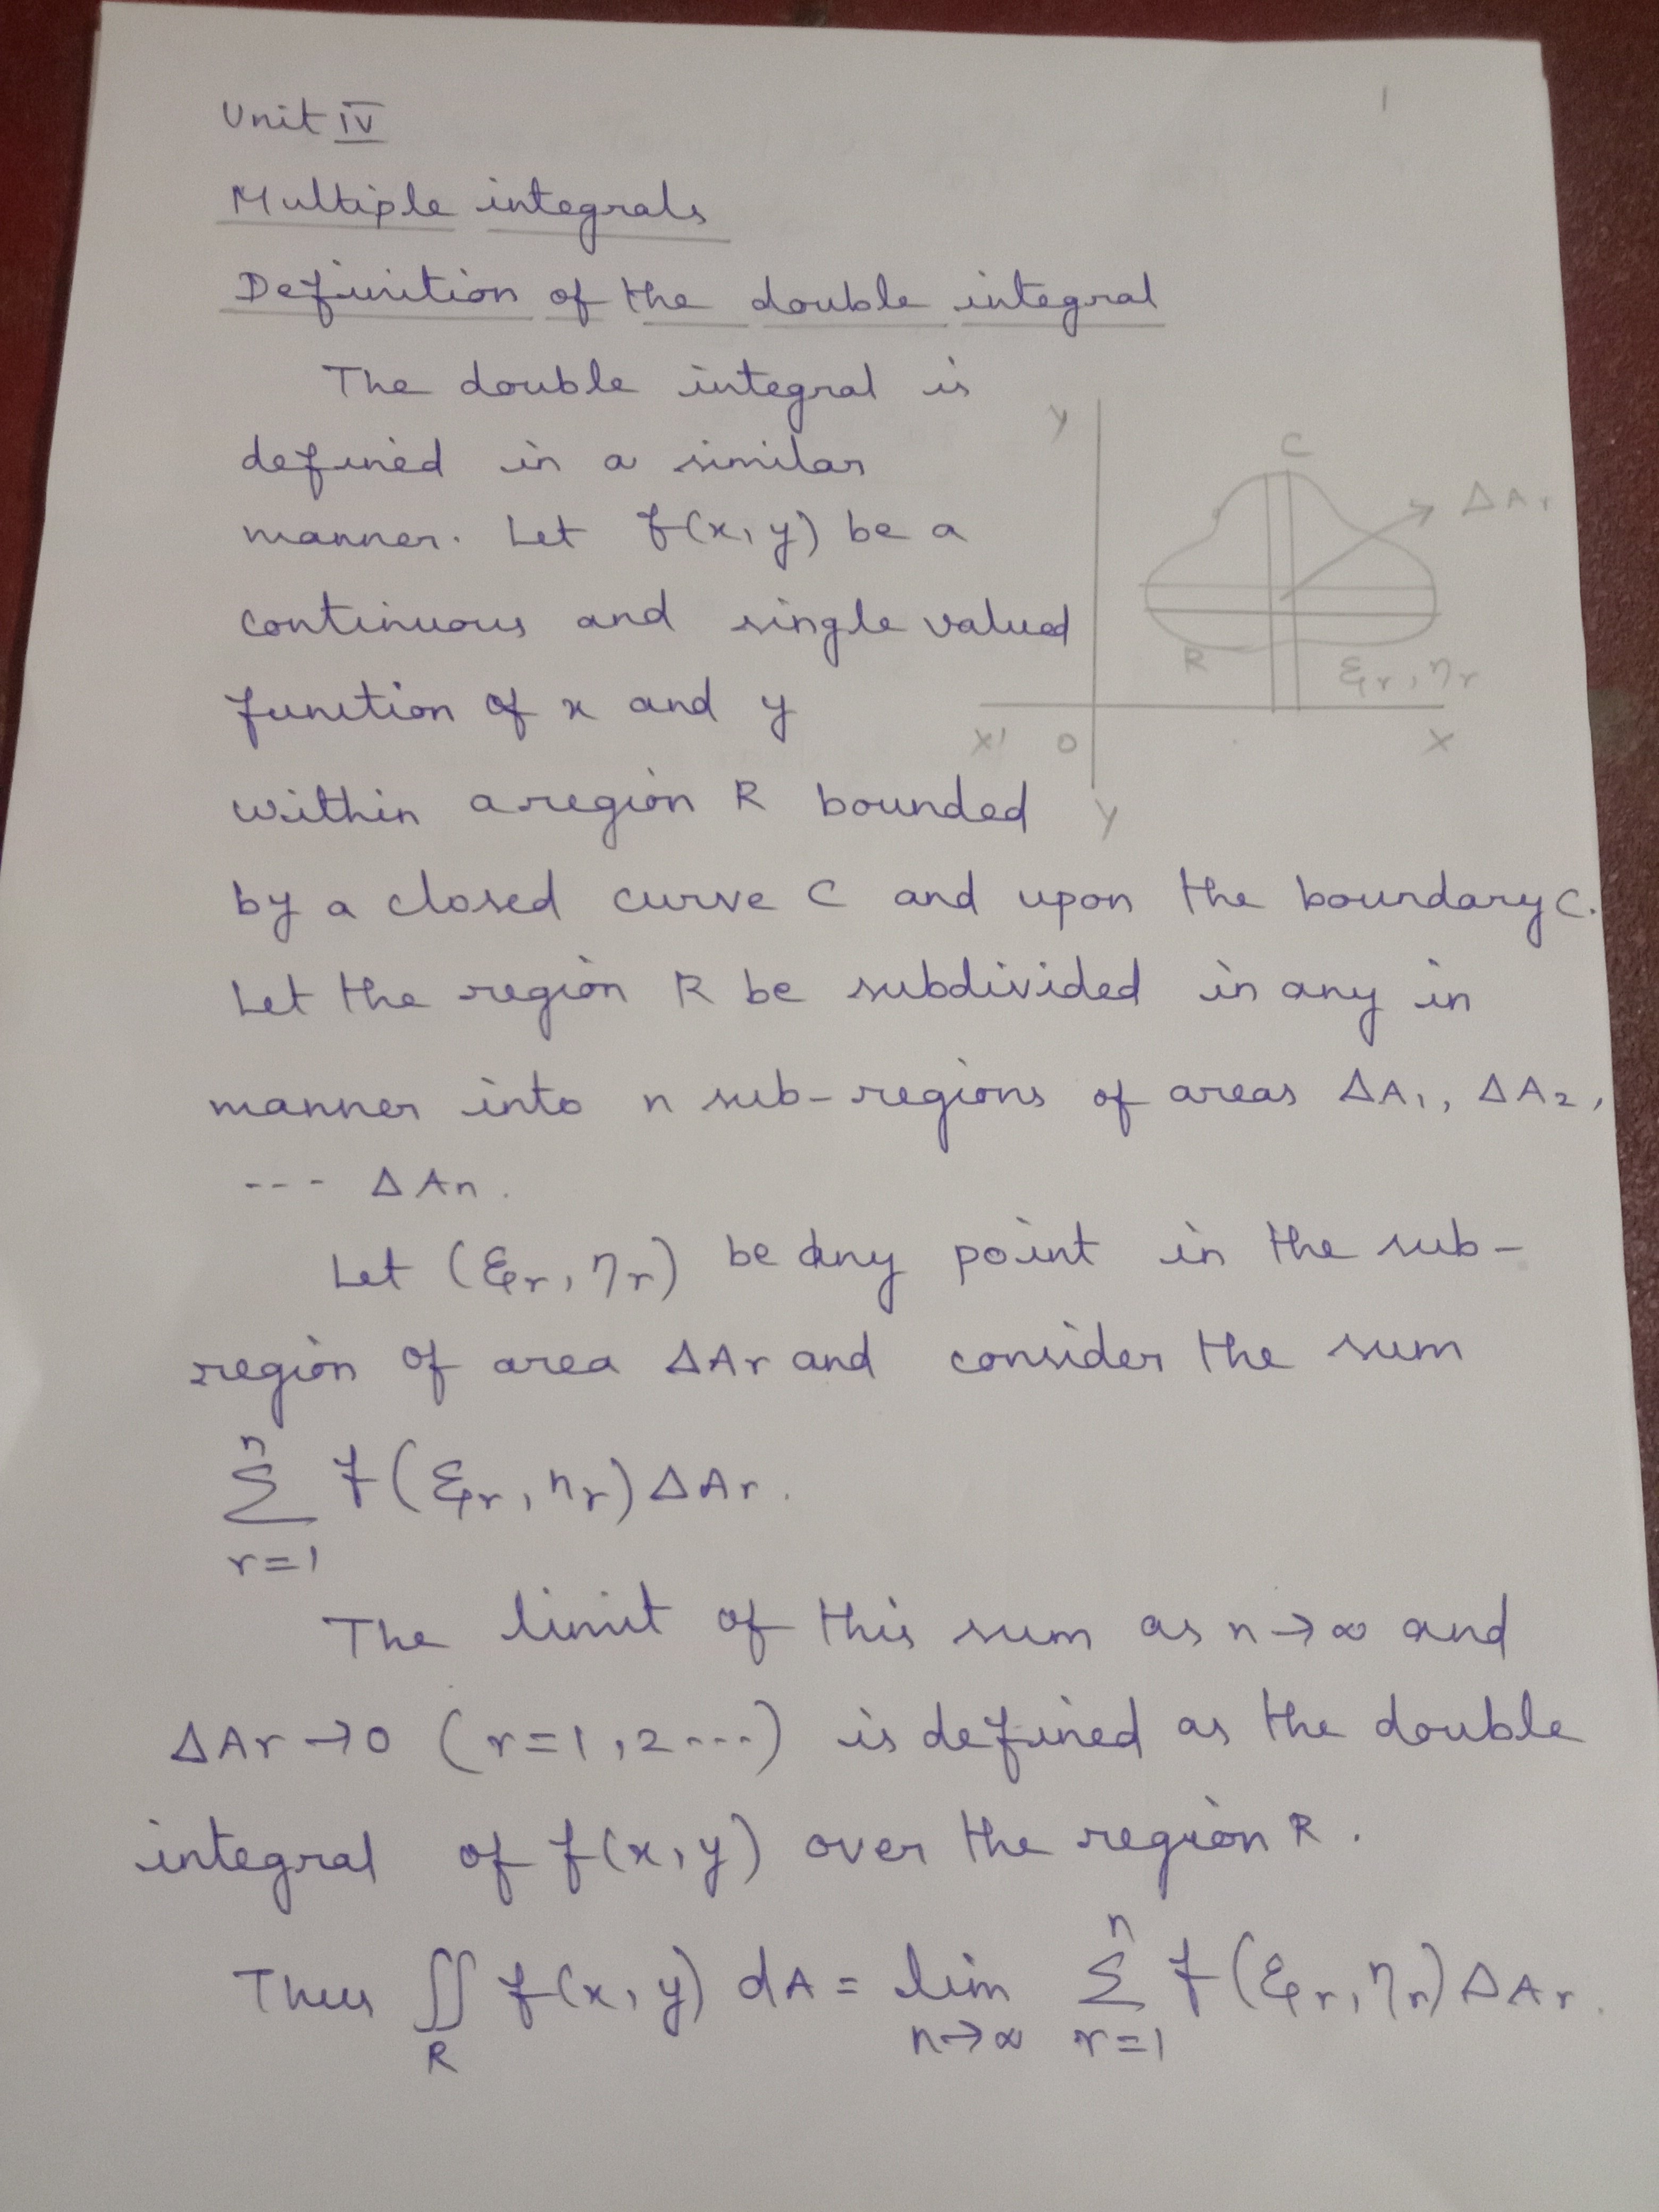 1
Unit IV
Multiple integrals
Definition of the double integral
The double integral is
defined in a similar
manner. Let f(x, y) be a
continuous and single valued
function of x and y
within a region R bounded
by a closed curve C and upon the boundary C.
Let the region R be subdivided in any in
manner into n sub-regions of areas ΔA₁, ΔA₂,
--- ΔAn.
Let (ξr, ηr) be any point in the sub-
region of area ΔAr and consider the sum
n
Σ f(ξr, ηr) ΔAr.
r=1
The limit of this sum as n→∞ and
ΔAr→0 (r=1,2---) is defined as the double
integral of f(x, y) over the region R.
n
Thus ∬ f(x, y) dA = lim Σ f(ξr, ηr) ΔAr.
R n→∞ r=1
y
C
ΔAr
R
ξr, ηr
X'
O
X
y